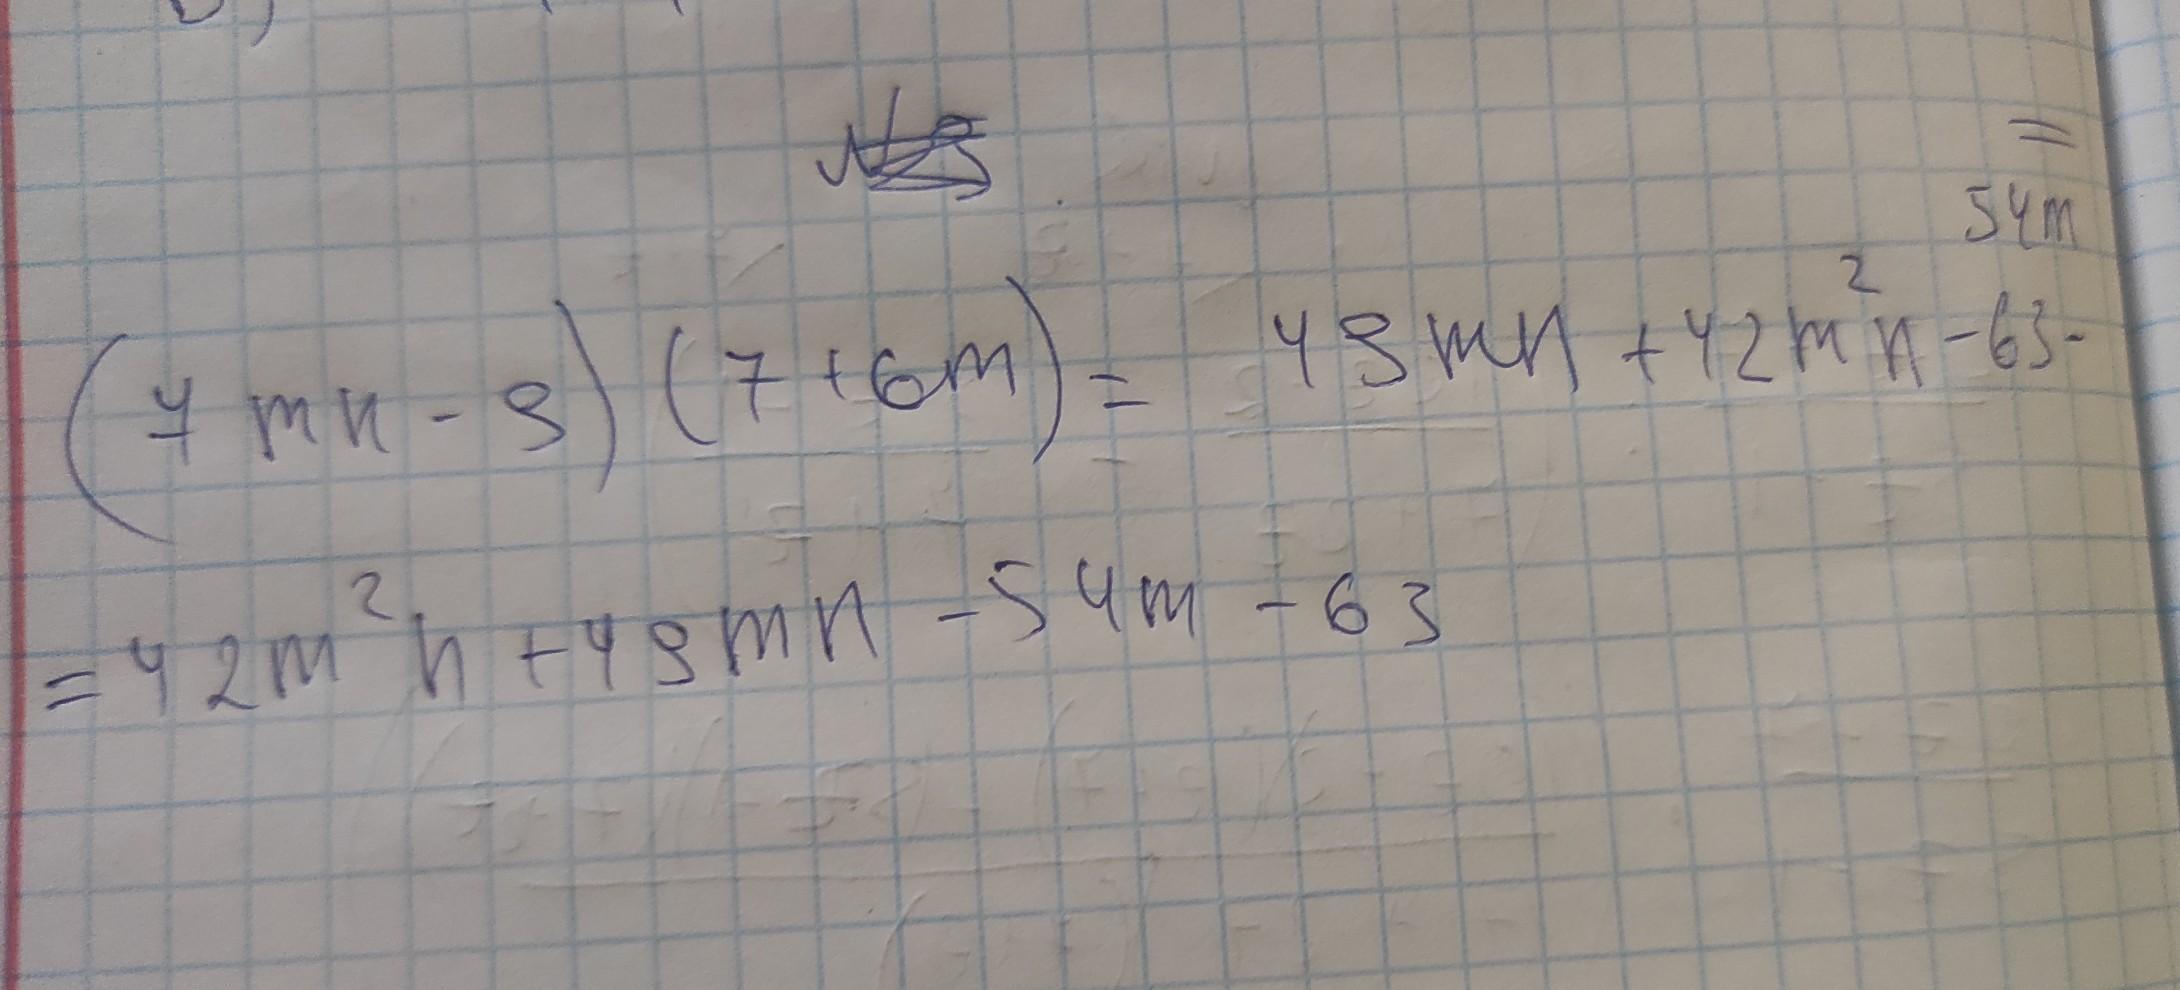 (7mn-9)(7+6m)= 49mn+42m²n-63-54m=
=42m²n+49mn-54m-63